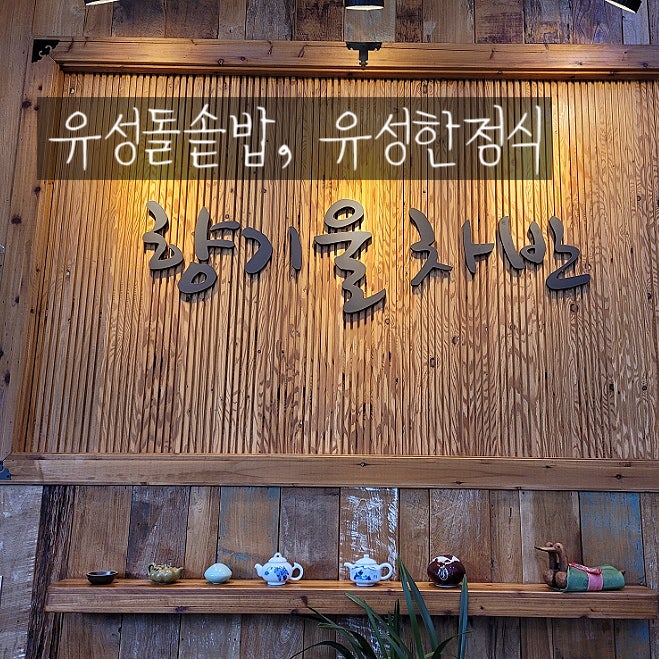 유성돌솥밥, 유성한정식
향기울차반